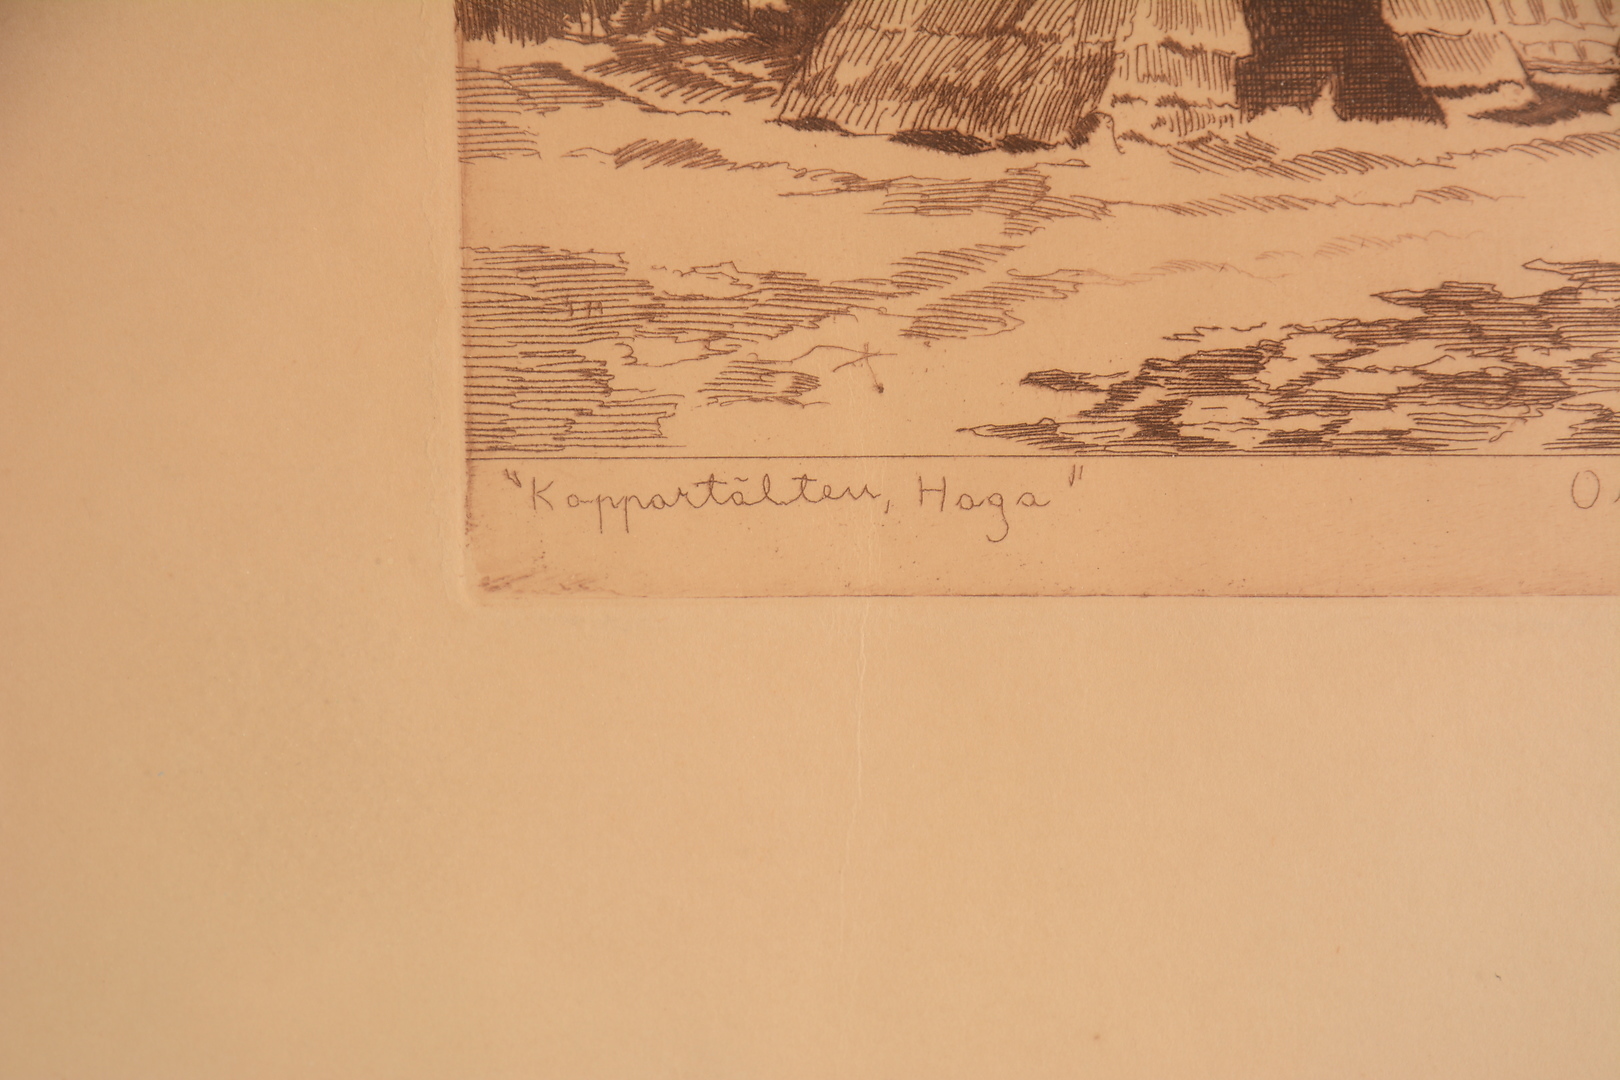 "Koppartälten, Haga"